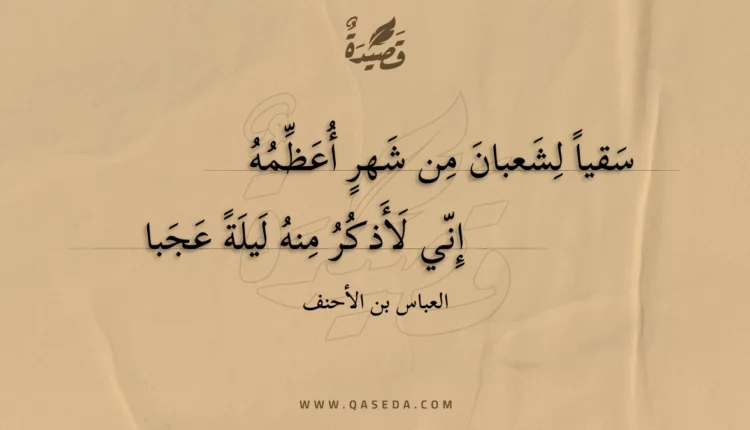 قَصِيدَةٌ
سَقياً لِشَعبانَ مِن شَهرٍ أُعَظِّمُهُ
إِنّي لَأَذكُرُ مِنهُ لَيلَةً عَجَبا
العباس بن الأحنف
WWW.QASEDA.COM